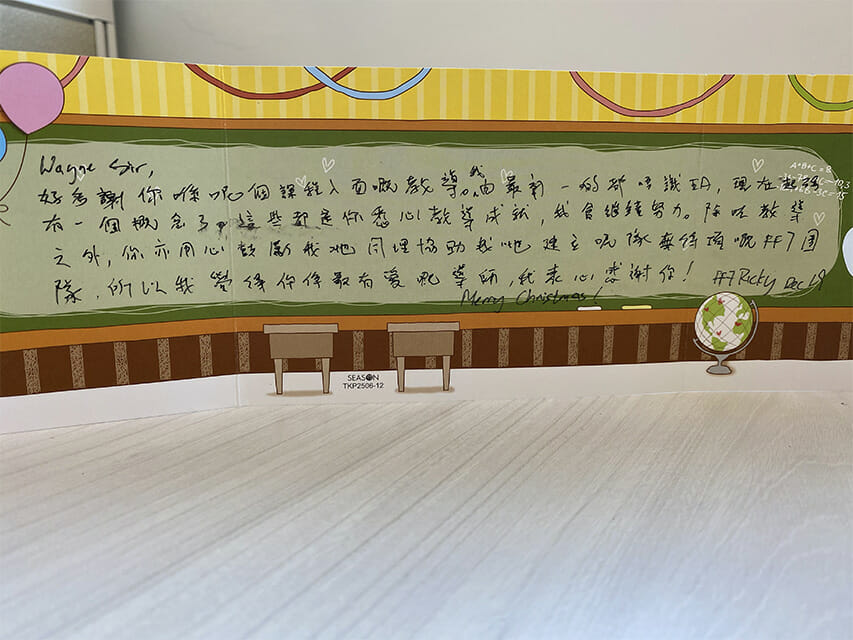 Wayne Sir,
好多謝你喺呢個課程入面嘅教導。我由最初一的都唔識EA,現在
有一個概念了,這些都是你悉心教導成就,我會繼續努力。除咗教導
之外,你亦用心鼓勵我地同埋協助我地建立呢隊無得頂嘅FF7團
隊,所以我覺得你係最有愛嘅導師,我衷心感謝你! FF7 Rocky Dec 19
Merry Christmas!
A+B+C=8
SEASON
TKP2506-12